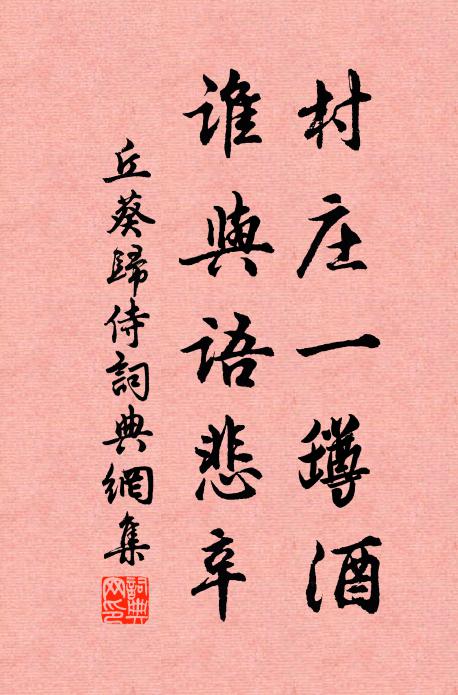 村庄一罇酒
誰與語悲辛
丘葵歸侍詞典網集
詞典网印